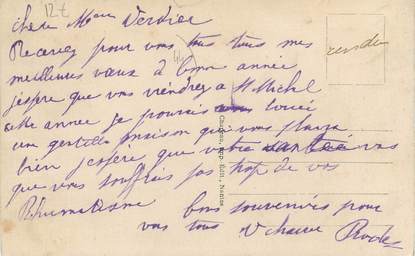 12 €
chere Mme Verdier
Recevez pour vous tous tous mes
meilleurs vœux de bonne année
j'espere que vous viendrez a St Michel
cette année je pourrais vous loué
une gentille maison qui vous plaira
bien j'espére que votre santée va
que vous souffrais pas trop de vos
Rhumatisme bons souvenirs pour
vous tous
Chapeau, Imp. Édit., Nantes